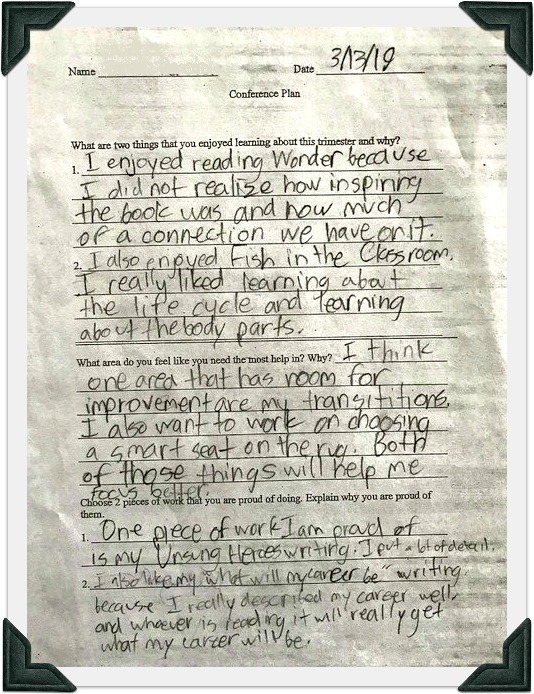 Name
Date 3/13/19
Conference Plan
What are two things that you enjoyed learning about this trimester and why?
1. I enjoyed reading Wonder because
I did not realize how inspiring
the book was and how much
of a connection we have on it.
2. I also enjoyed Fish in the Classroom.
I really liked learning about
the life cycle and learning
about the body parts.
What area do you feel like you need the most help in? Why? I think
one area that has room for
improvement are my transititions.
I also want to work on choosing
a smart seat on the rug. Both
of those things will help me
focus better.
Choose 2 pieces of work that you are proud of doing. Explain why you are proud of
them.
1. One piece of work I am proud of
is my Unsung Heroes writing. I put a lot of detail.
2. I also like my "what will my career be" writing
because I really described my career well,
and whoever is reading it will really get
what my career will be.